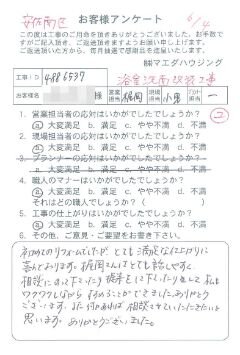 安佐南区
お客様アンケート
6/4
この度は工事のご用命を頂きありがとうございました。お手数で
すがご記入頂き、ご返送頂きますようお願い申し上げます。
ご返送頂いた方から、毎月抽選で感謝品を送呈します。
㈱マエダハウジング
工事ID 4886537 浴室洗面改装工事
お客様名 様 営業担当 梶岡 現場担当 小里
1. 営業担当者の応対はいかがでしたでしょうか?
a. 大変満足 b. 満足 c. やや不満 d. 不満
2. 現場担当者の応対はいかがでしたでしょうか?
a. 大変満足 b. 満足 c. やや不満 d. 不満
3. プランナーの応対はいかがでしたでしょうか?
a. 大変満足 b. 満足 c. やや不満 d. 不満
4. 職人のマナーはいかがでしたでしょうか?
a. 大変満足 b. 満足 c. やや不満 d. 不満
それはどの職人でしょう( )
5. 工事の仕上がりはいかがでしたでしょうか?
a. 大変満足 b. 満足 c. やや不満 d. 不満
6. その他、ご意見・ご要望をお書き下さい。
初めてのリフォームでしたが とても満足な仕上がりに
喜んでおります。梶岡さんはとても話しやすく
相談にのって下さったり 提案をして下さったりで 私も
ワクワクしながら 行めることができました。ありがとう
ございます。また何かあれば 相談させていただきたいと
思います。ありがとうございました。